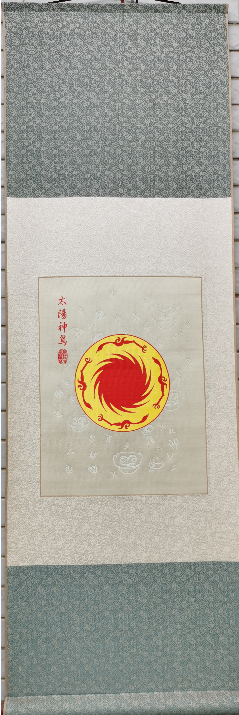 太陽神鳥